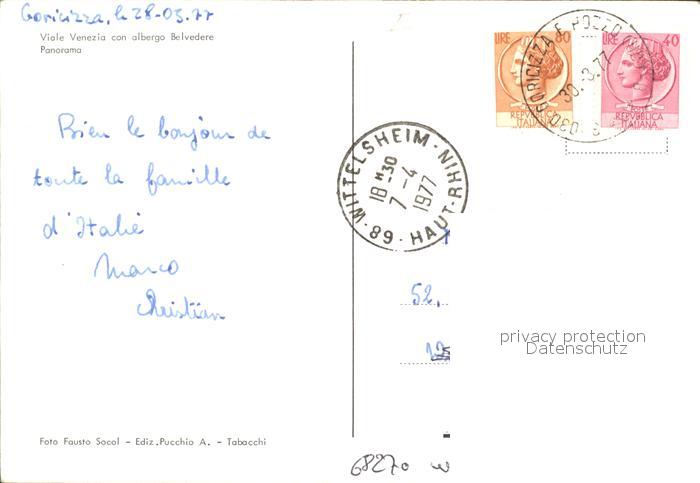 Goricizza, le 28-03.77
Viale Venezia con albergo Belvedere
Panorama
LIRE 80
REPVBBLICA
ITALIANA
LIRE 40
REPVBBLICA
ITALIANA
GORICIZZA E POZZO
30.-3.77
WITTELSHEIM - HAUT-RHIN - 68
18 H 30
7 - 4
1977
Bien le bonjour de
toute la famille
d'Italie
Marco
Christian
52,
privacy protection
Datenschutz
Foto Fausto Socol - Ediz.Pucchio A. - Tabacchi
68270 W